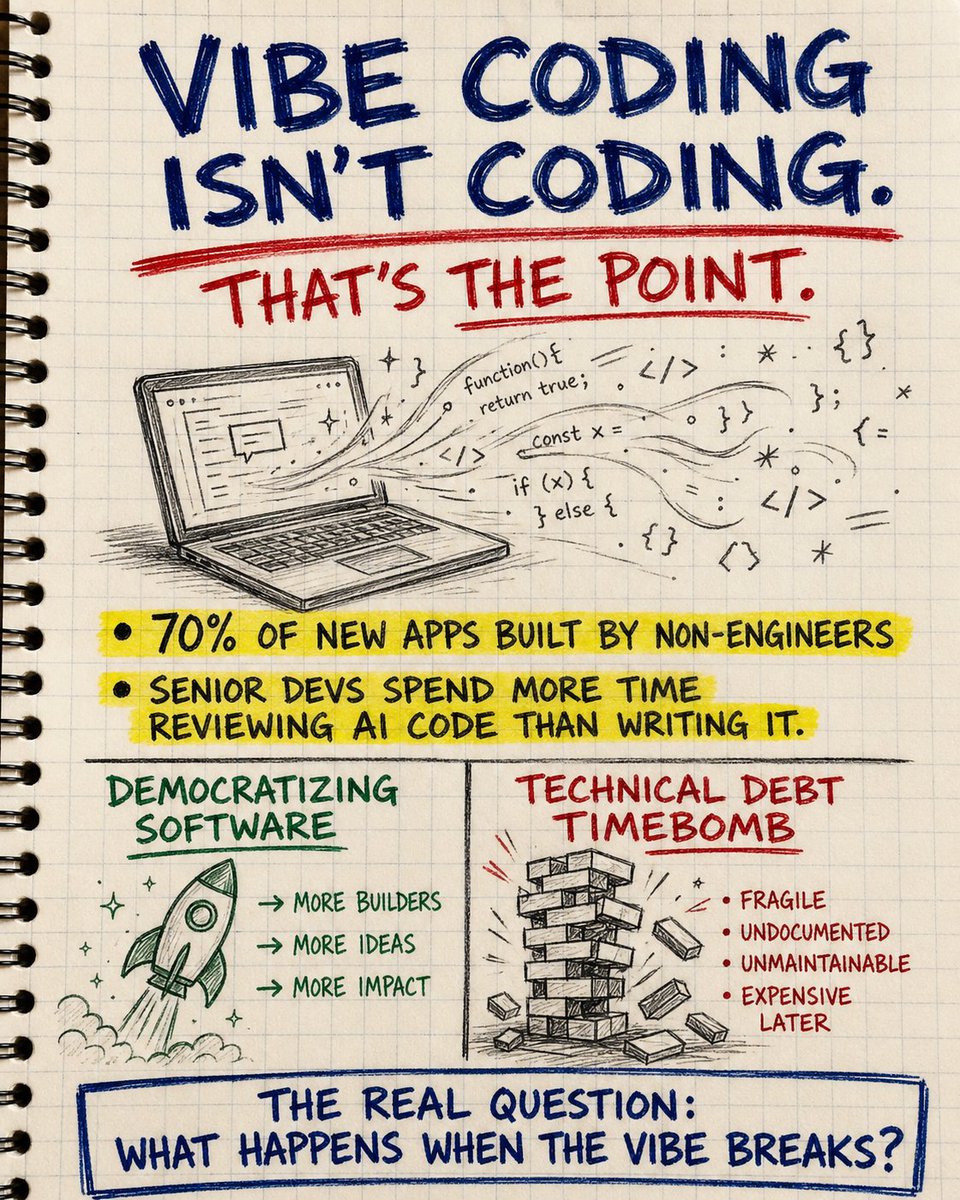 VIBE CODING
ISN'T CODING.
THAT'S THE POINT.
}
function(){
return true;
</>
:
*
{}
</>
const x =
}}
};
*
{=
if (x) {
} else {
*
=
</>
{}
<>
*
• 70% OF NEW APPS BUILT BY NON-ENGINEERS
• SENIOR DEVS SPEND MORE TIME
REVIEWING AI CODE THAN WRITING IT.
DEMOCRATIZING
SOFTWARE
→ MORE BUILDERS
→ MORE IDEAS
→ MORE IMPACT
TECHNICAL DEBT
TIMEBOMB
• FRAGILE
• UNDOCUMENTED
• UNMAINTAINABLE
• EXPENSIVE
LATER
THE REAL QUESTION:
WHAT HAPPENS WHEN THE VIBE BREAKS?